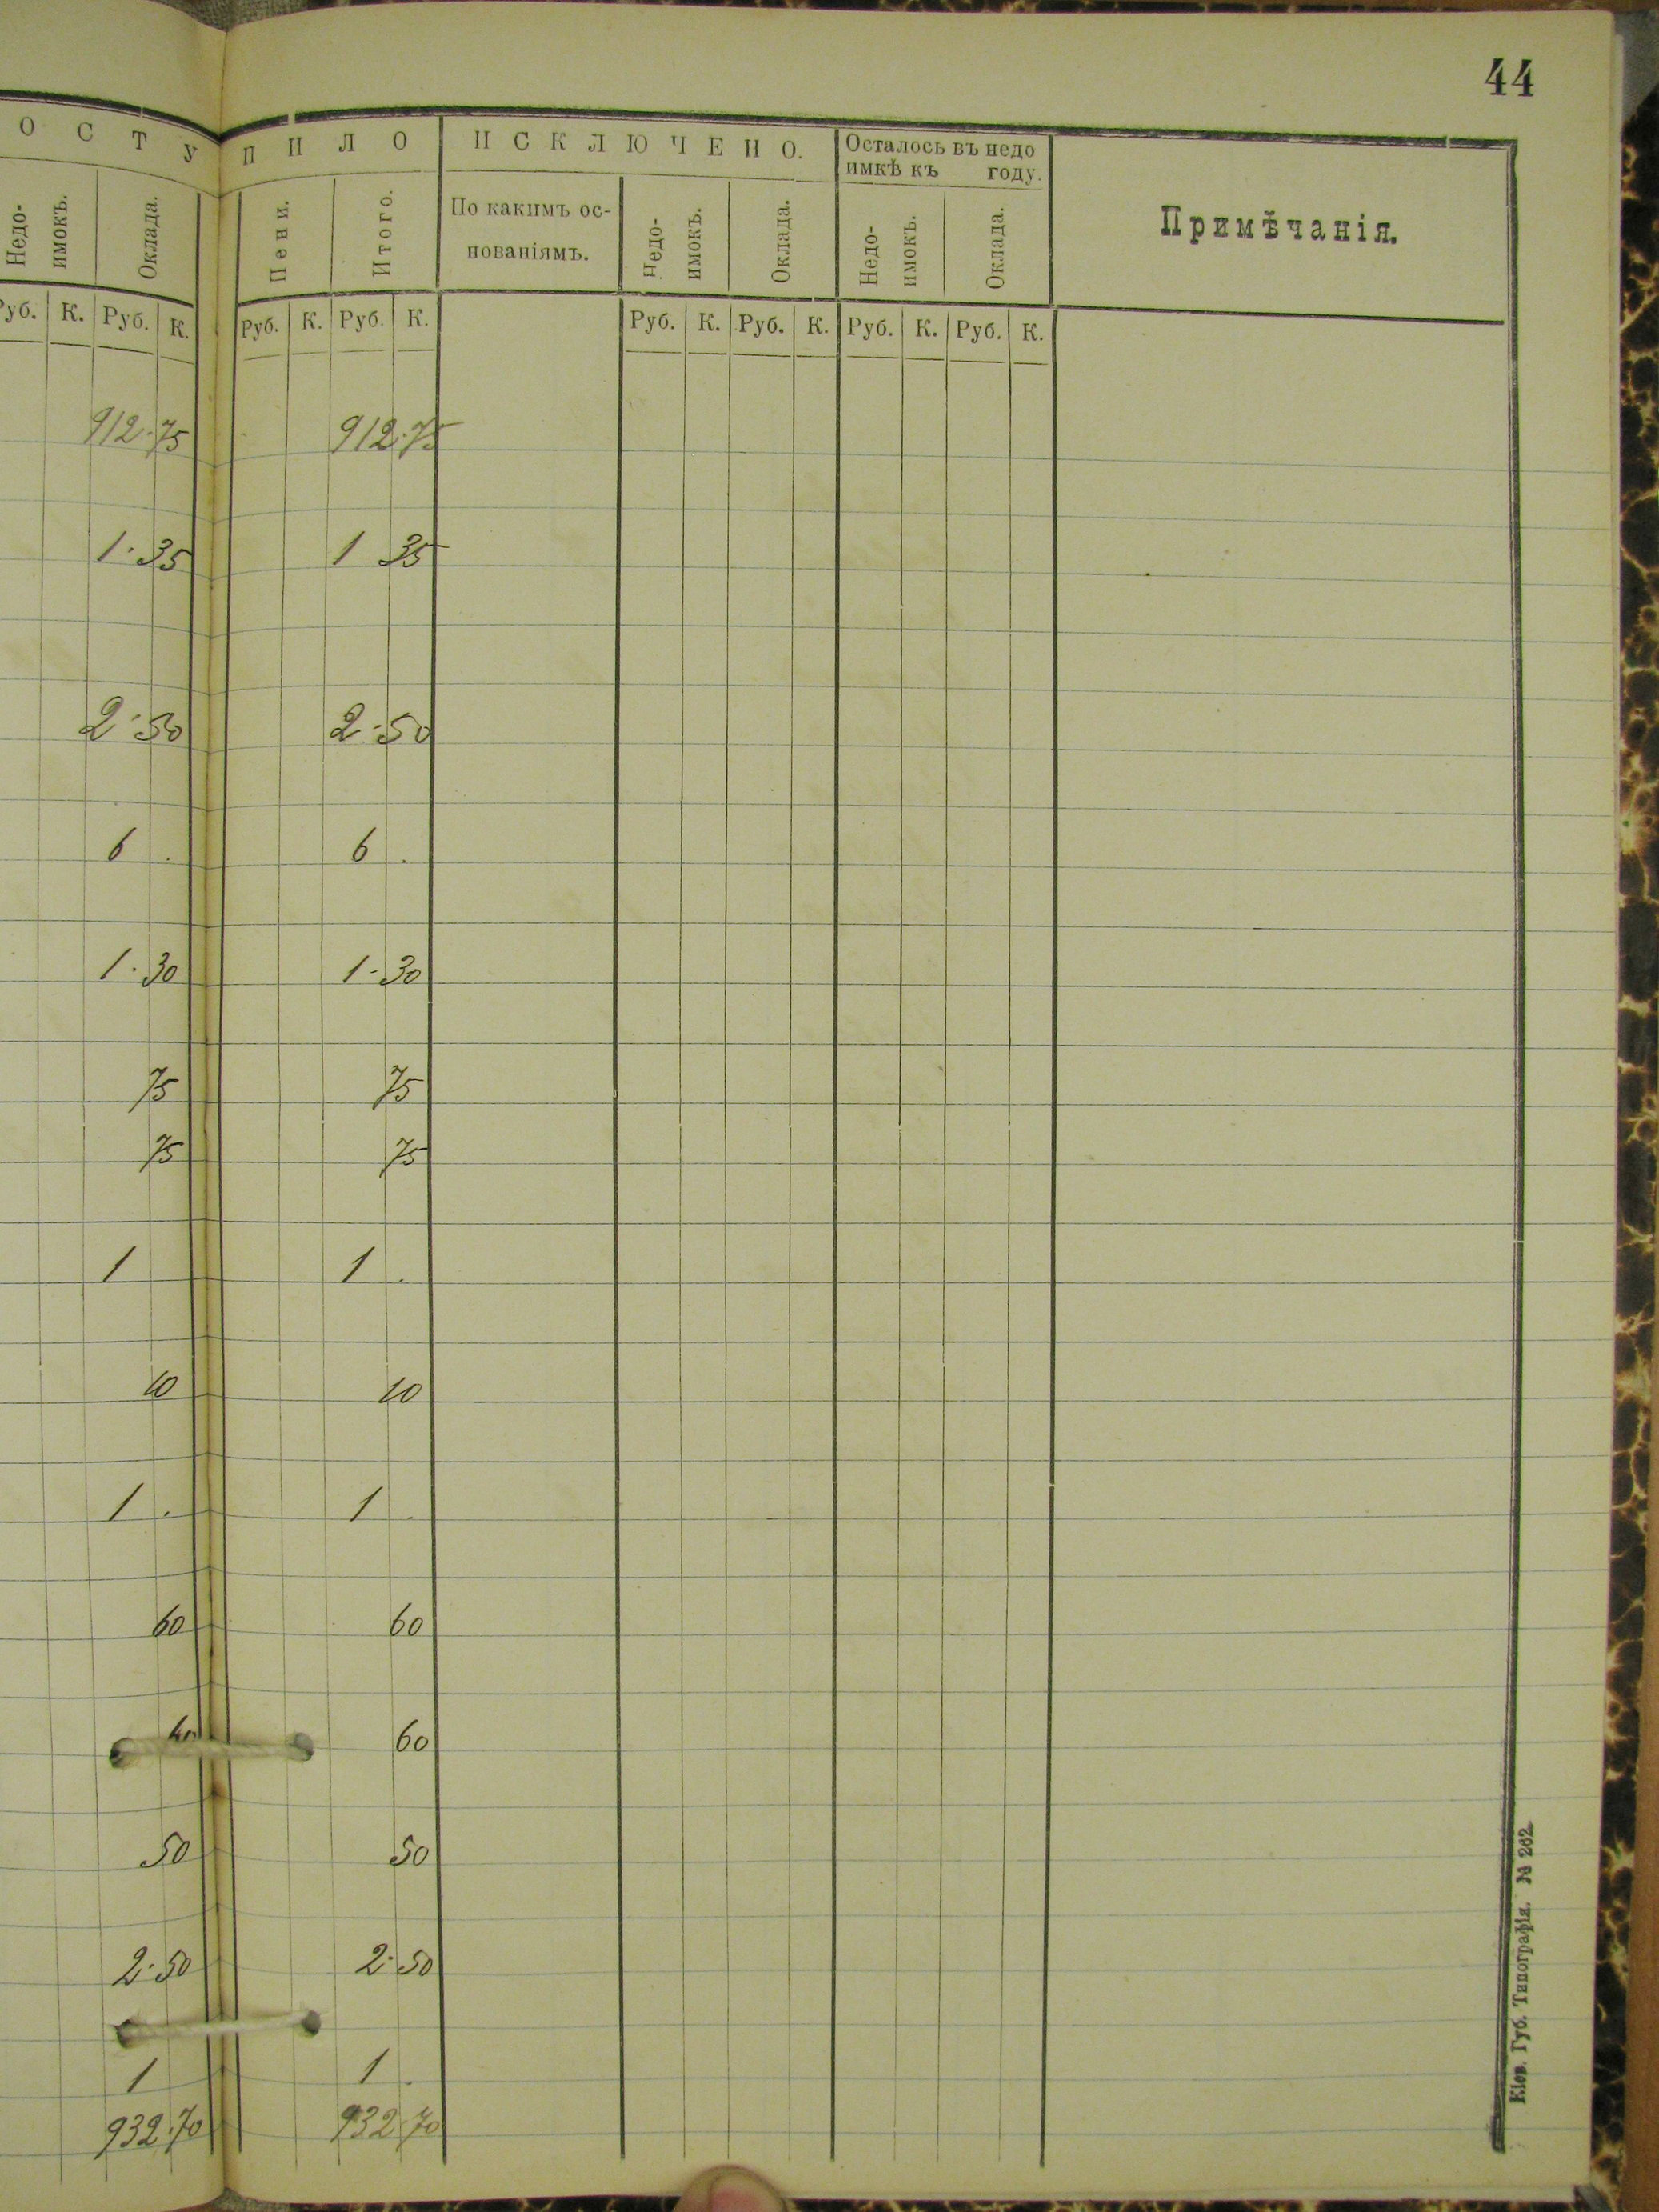 44
О С Т У П И Л О И С К Л Ю Ч Е Н О. Осталось въ недо
имкѣ къ году.
Примѣчанія.
Недо-
имокъ. Оклада. Пени. Итого. По какимъ ос-
нованіямъ. Недо-
имокъ. Оклада. Недо-
имокъ. Оклада.
Руб. К. Руб. К. Руб. К. Руб. К. Руб. К. Руб. К. Руб. К. Руб. К.
912.75 912.75
1.35 1 35
2.50 2.50
6 . 6 .
1.30 1.30
75 75
75 75
1 1 .
10 10
1 . 1 .
60 60
60 60
50 50
2.50 2.50
1 1 .
932.70 932.70
Кіев. Губ. Типографія. № 262.